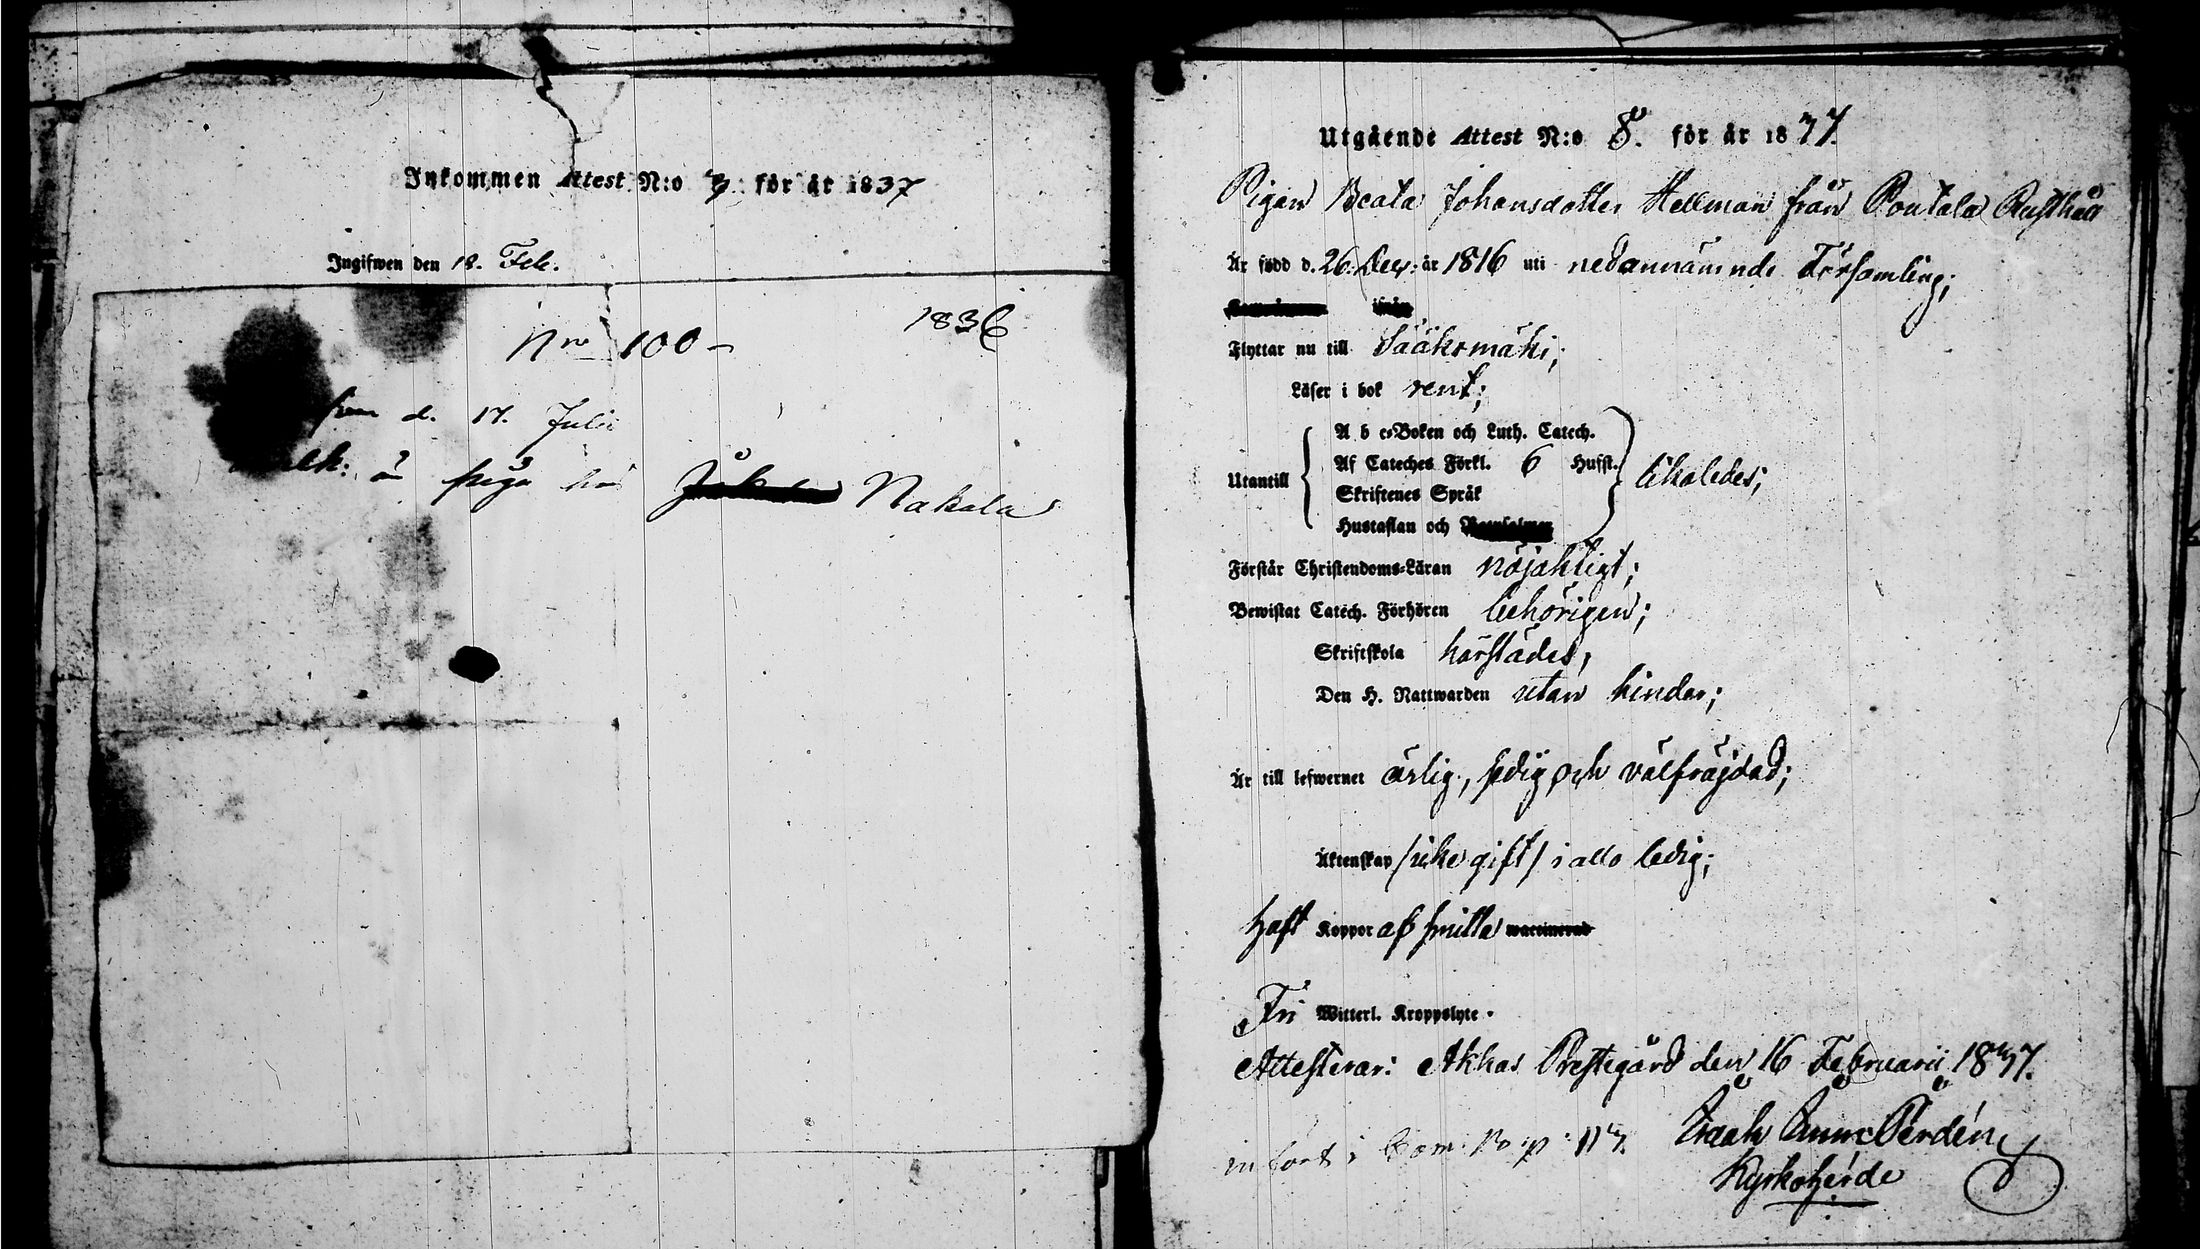 Inkommen Attest N:o 7 för år 1837
Ingifwen den 18. Feb.
1836
Nro 100 -
d. 17. Julii
är piga hos Nakala
Utgående Attest N:o 8. för år 1837.
Pigan Beata Johansdotter Hellman från Rusthåll
Är född d. 26. Dec. år 1816 uti nedannämnde Församling;
ifrån
Flyttar nu till Sääksmäki;
Läser i bok rent;
A b c-Boken och Luth. Catech.
Af Cateches Förkl. 6 Hufst.
Utantill likaledes;
Skriftenes Språk
Hustaflan och
Förstår Christendoms-Läran nöjaktigt;
Bewistat Catech. Förhören behörigen;
Skriftskola härstädes,
Den H. Nattwarden utan hinder;
Är till lefwernet ärlig, sedig och välfräjdad;
Äktenskap /icke gift/ i allo ledig;
Haft Koppor af smitta waccinerad
Fri Witterl. Kroppslyte.
Attesterar: Akkas Prestegård den 16 Februarii 1837.
infört i Com. Bo. p: 117.
Kyrkoherde